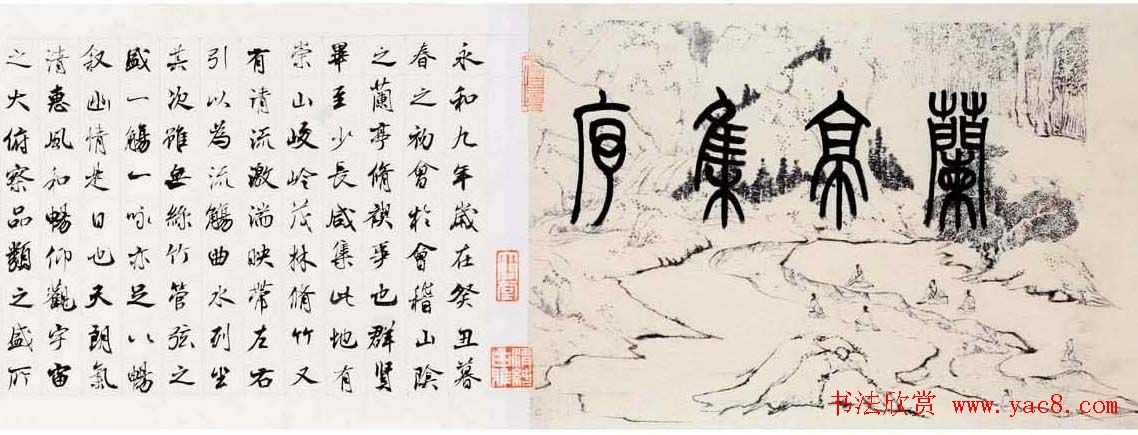 蘭亭集序
永和九年歲在癸丑暮
春之初會於會稽山陰
之蘭亭脩禊事也群賢
畢至少長咸集此地有
崇山峻岭茂林脩竹又
有清流激湍映帶左右
引以為流觴曲水列坐
其次雖無絲竹管弦之
盛一觴一咏亦足以暢
叙幽情是日也天朗氣
清惠風和暢仰觀宇宙
之大俯察品類之盛所
书法欣赏 www.yac8.com